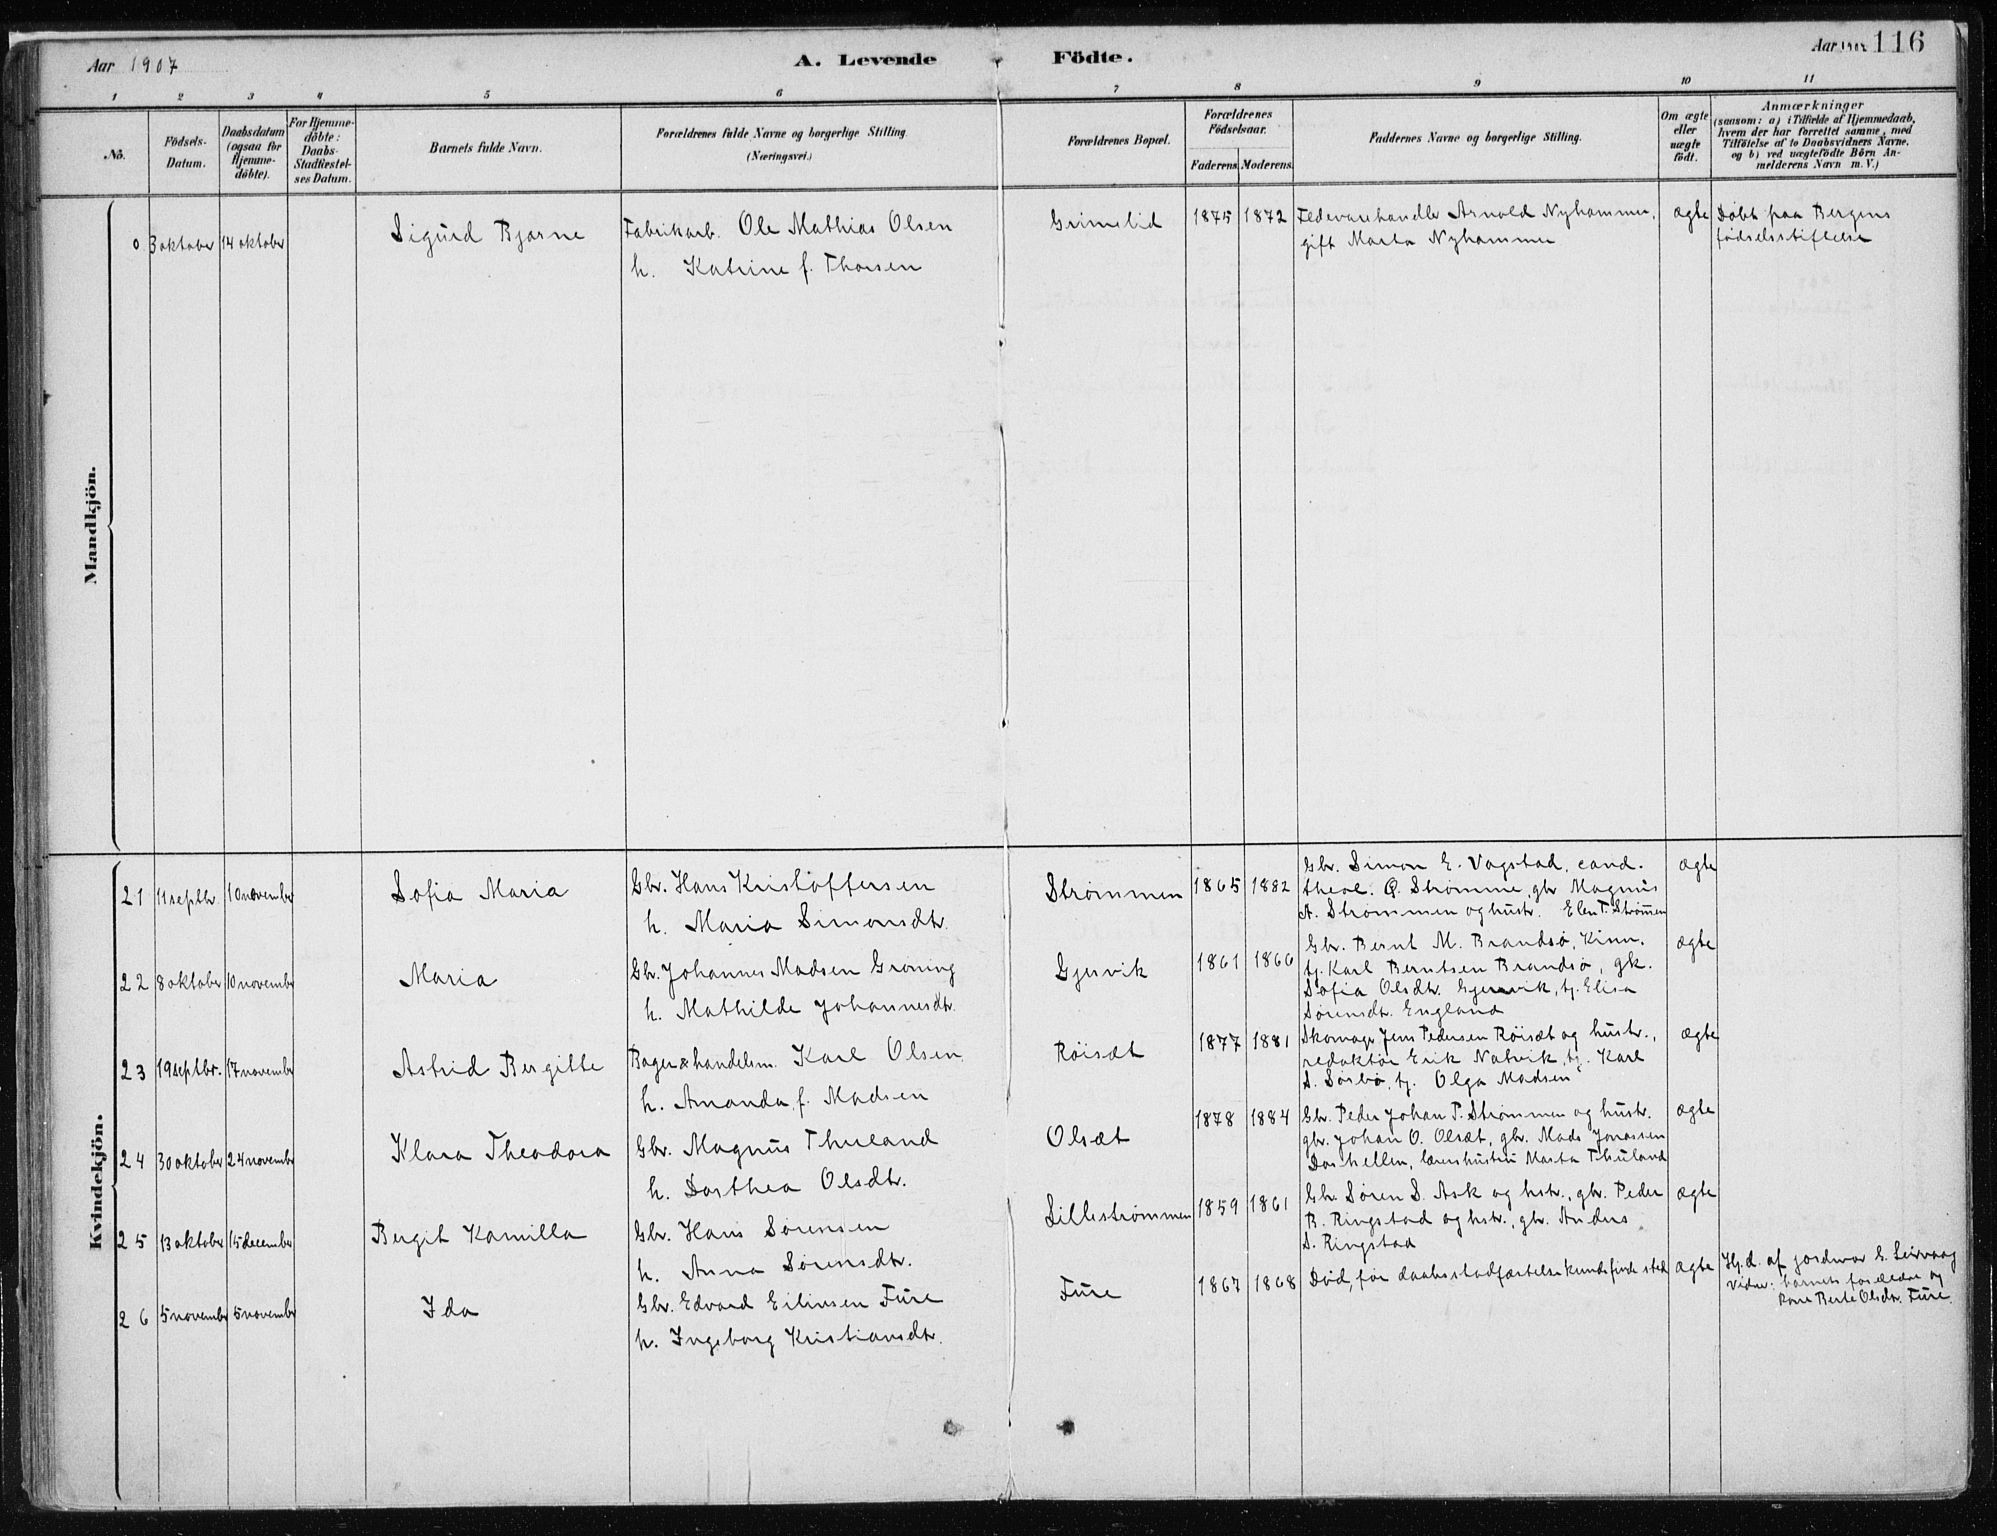 Aar 1907
A. Levende Födte.
Aar 116
1 2 3 4 5 6 7 8 9 10 11
No.
Födsels-
Datum.
Daabsdatum
(ogsaa for
Hjemme-
döbte).
For Hjemme-
döbte:
Daabs-
Stadfæstel-
ses Datum.
Barnets fulde Navn.
Forældrenes fulde Navne og borgerlige Stilling.
(Næringsvei.)
Forældrenes Bopæl.
Forældrenes
Födselsaar.
Faderens. Moderens.
Faddernes Navne og borgerlige Stilling.
Om ægte
eller
uægte
födt.
Anmærkninger
(saasom: a) i Tilfælde af Hjemmedaab,
hvem der har forrettet samme, med
Tilföielse af to Daabsvidners Navne,
og b) ved uægtefödte Börn An-
melderens Navn m. V.)
Mandkjön.
0 3 oktober 14 oktober Sigurd Bjarne Fabrikarb. Ole Mathias Olsen
h. Katrine f. Thorsen
Grimelid 1875 1872 Fedevarehandler Arnold Nyhammer,
gift Marta Nyhammer
ægte Døbt paa Bergens
fødselsstiftelse
Kvindekjön.
21 11 septbr. 10 november Sofia Maria Gbr. Hans Kristoffersen
h. Maria Simonsdtr.
Strømmen 1865 1882 Gbr. Simon E. Vagstad, cand.
theol. Q. Strømme, gbr Magnus
A. Strømmen og hustr. Elen T. Strømmen
ægte
22 8 oktober 10 november Maria Gbr. Johannes Madsen Grøning
h. Mathilde Johannesdtr.
Gjervik 1861 1866 Gbr. Bernt M. Brandsø, Kinn.
tj. Karl Berntsen Brandsø, gk.
Sofia Olsdtr. Gjervik, tj. Elisa
Sørensdtr. England
ægte
23 19 septbr. 17 november Astrid Bergitte Bager & handelsm. Karl Olsen
h. Amanda f. Madsen
Røisæt 1877 1881 Skomagr Jens Pedersen Røisæt og hustr.,
redaktør Erik Natvik, tj. Karl
S. Sørbø, tj. Olga Madsen
ægte
24 30 oktober 24 novembr Klara Theodora Gbr. Magnus Thuland
h. Dorthea Olsdtr.
Olsæt 1878 1884 Gbr. Peder Johan P. Strømmen og hustr.
gbr. Johan O. Olsæt, gbr. Mads Jonassen
Dashellen, lærershustru Marta Thuland
ægte
25 13 oktober 15 december Bergit Kamilla Gbr. Hans Sørensen
h. Anna Sørensdtr.
Lillestrømmen 1859 1861 Gbr. Søren S. Ask og hstr., gbr. Peder
B. Ringstad og hstr., gbr. Anders
S. Ringstad
ægte
26 5 novembr 5 november Ida Gbr. Edvard Eilertsen Fure
h. Ingeborg Kristiansdtr.
Fure 1867 1868 Død, før daabsstadfæstelse kunde finde sted ægte Hj.d. af jordmor E. Leirvaag
Vidner: barnets forældre og
kone Berte Olsdtr. Fure.